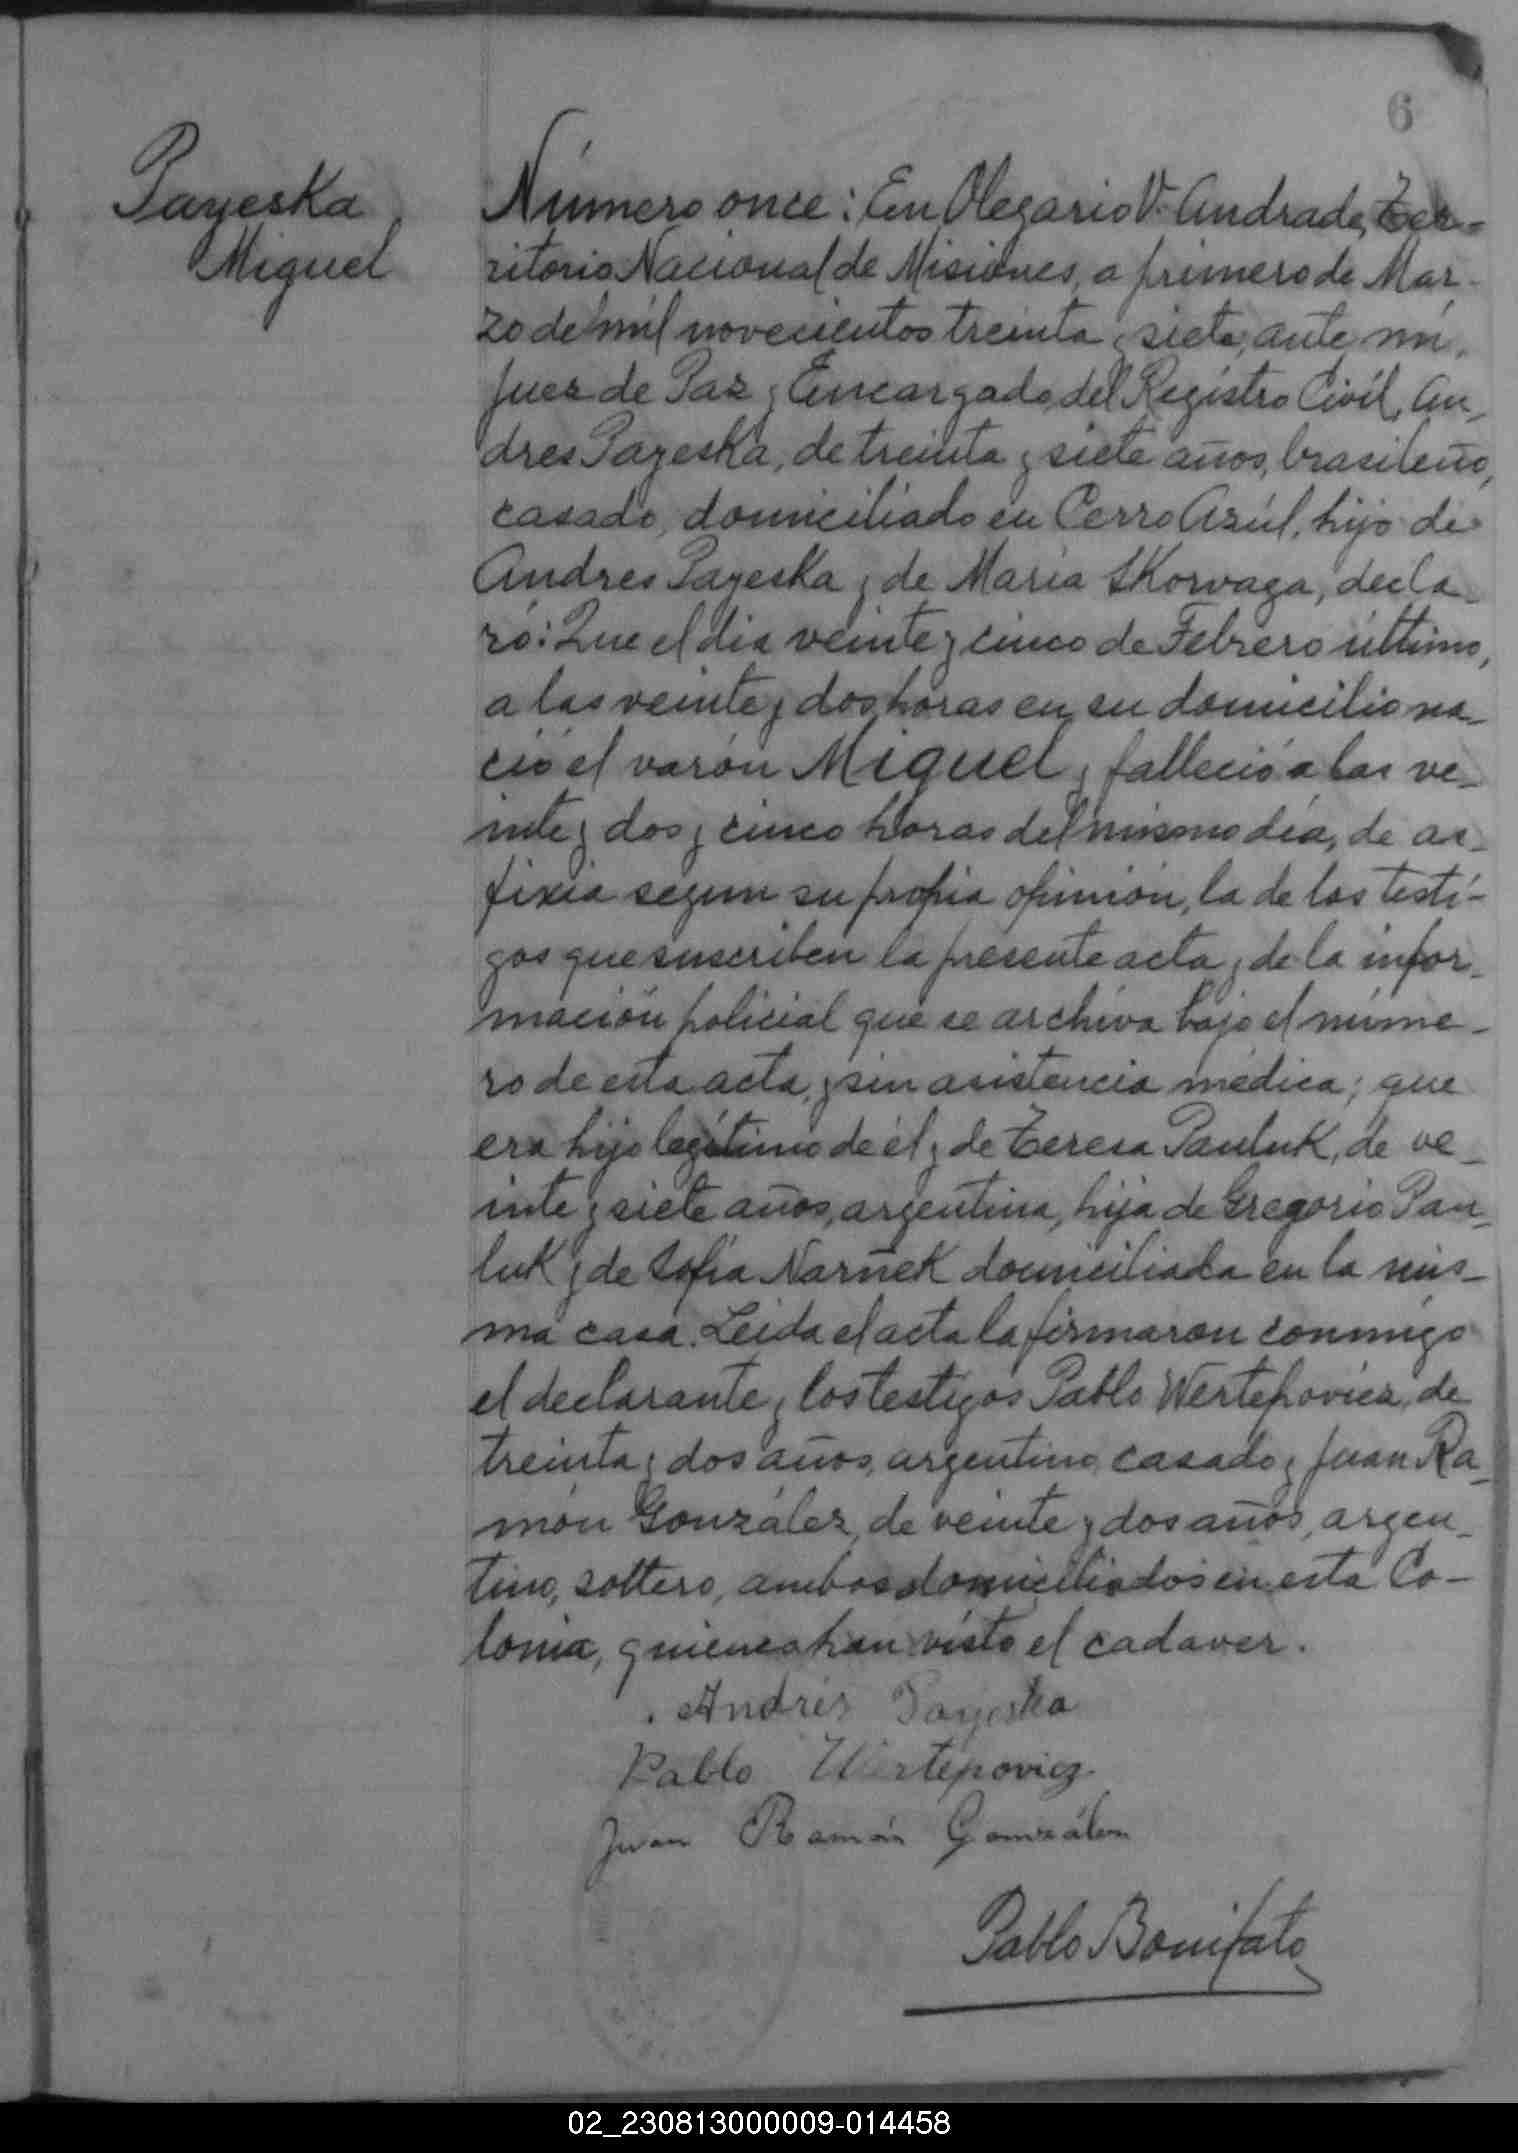 6
Payeska
Miguel
Número once: En Olegario V. Andrade, Ter-
ritorio Nacional de Misiones, a primero de Mar-
zo de mil novecientos treinta y siete, ante mi,
Juez de Paz y Encargado del Registro Civil, An-
dres Payeska, de treinta y siete años, brasileño,
casado, domiciliado en Cerro Azúl, hijo de
Andres Payeska y de Maria Skorvaga, decla-
ró: Que el dia veinte y cinco de Febrero último,
a las veinte y dos horas en su domicilio na-
ció el varón Miguel y falleció a las ve-
inte y dos y cinco horas del mismo día, de as-
fixia segun su propia opinión, la de los testi-
gos que suscriben la presente acta y de la infor-
mación policial que se archiva bajo el núme-
ro de esta acta, y sin asistencia médica; que
era hijo legítimo de él y de Teresa Pauluk, de ve-
inte y siete años, argentina, hija de Gregorio Pau-
luk y de Sofia Narñek domiciliada en la mis-
ma casa. Leida el acta la firmaron conmigo
el declarante y los testigos Pablo Wertepovicz, de
treinta y dos años, argentino, casado y Juan Ra-
món González, de veinte y dos años, argen-
tino, soltero, ambos domiciliados en esta Co-
lonia, quienes han visto el cadaver.
Andrés Payeska
Pablo Wertepovicz
Juan Ramón González
Pablo Bonifato
02_230813000009-014458